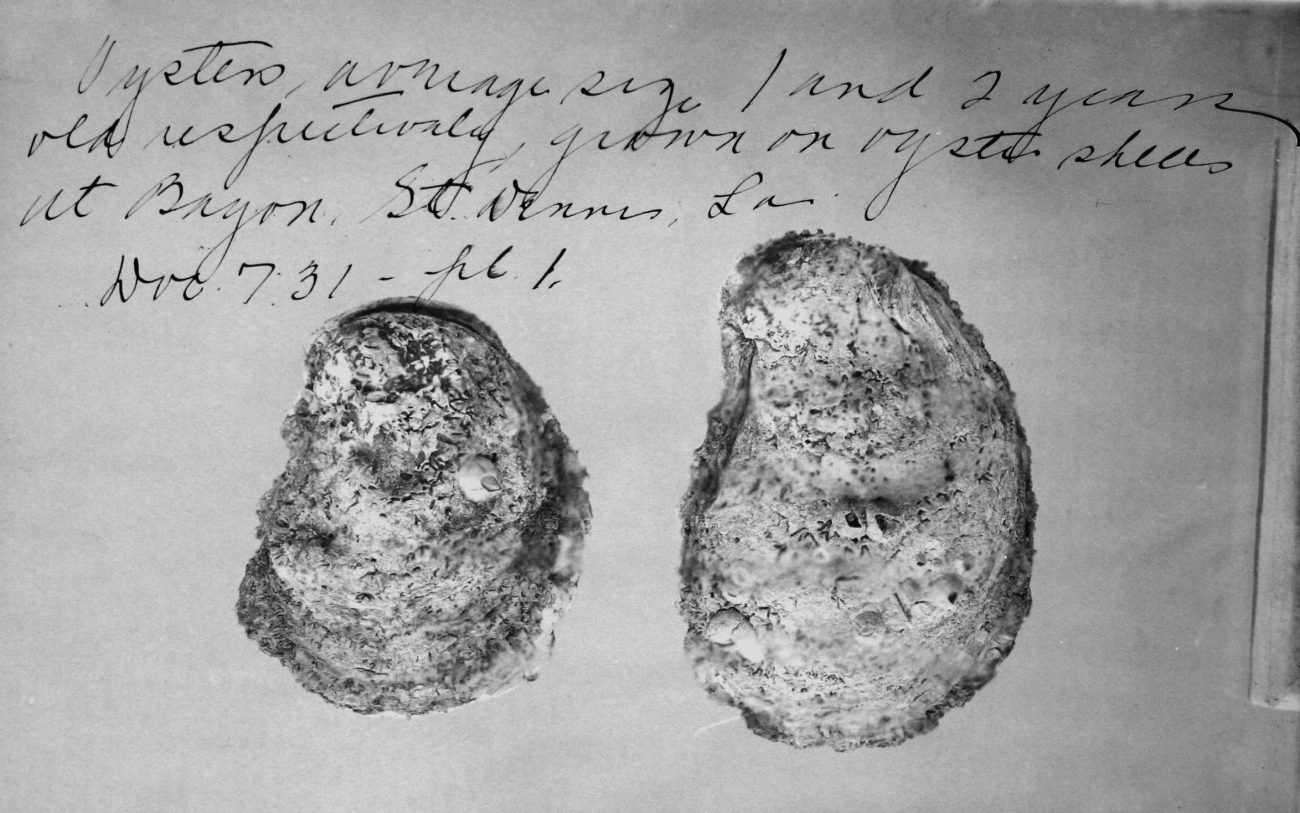 Oysters, average size 1 and 2 years
old respectively, grown on oyster shells
at Bayou, St. Dennis, La.
Doc. 731 - pl. 1.